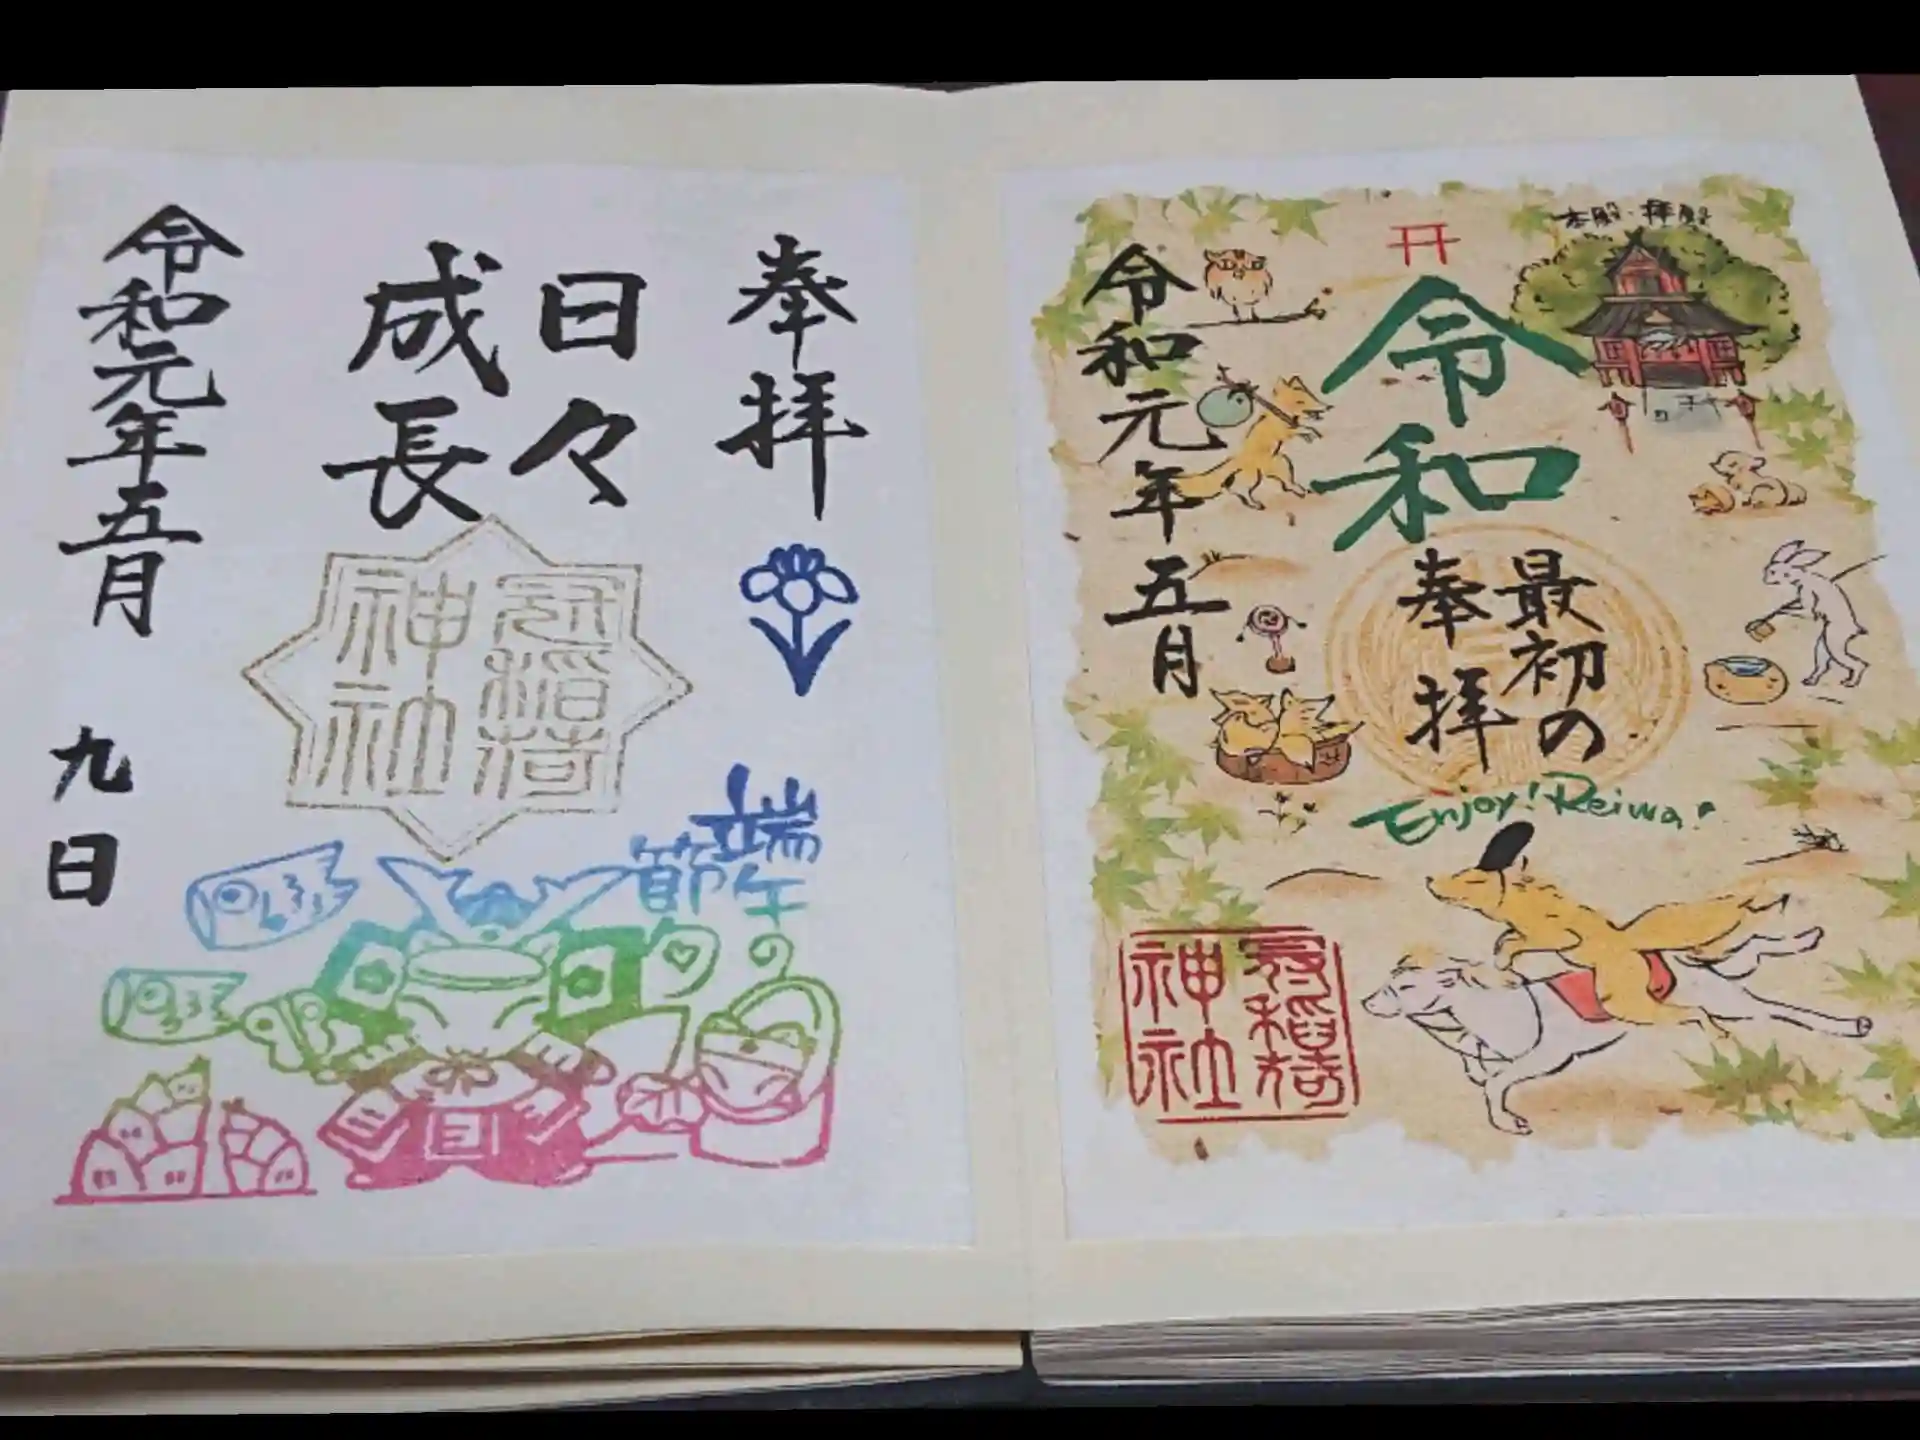 奉拝
日々
成長
冠稲荷
神社
令和元年五月
九日
端午の
節句
本殿・拝殿
令和
最初の
奉拝
Enjoy! Reiwa!
令和元年五月
冠稲荷
神社